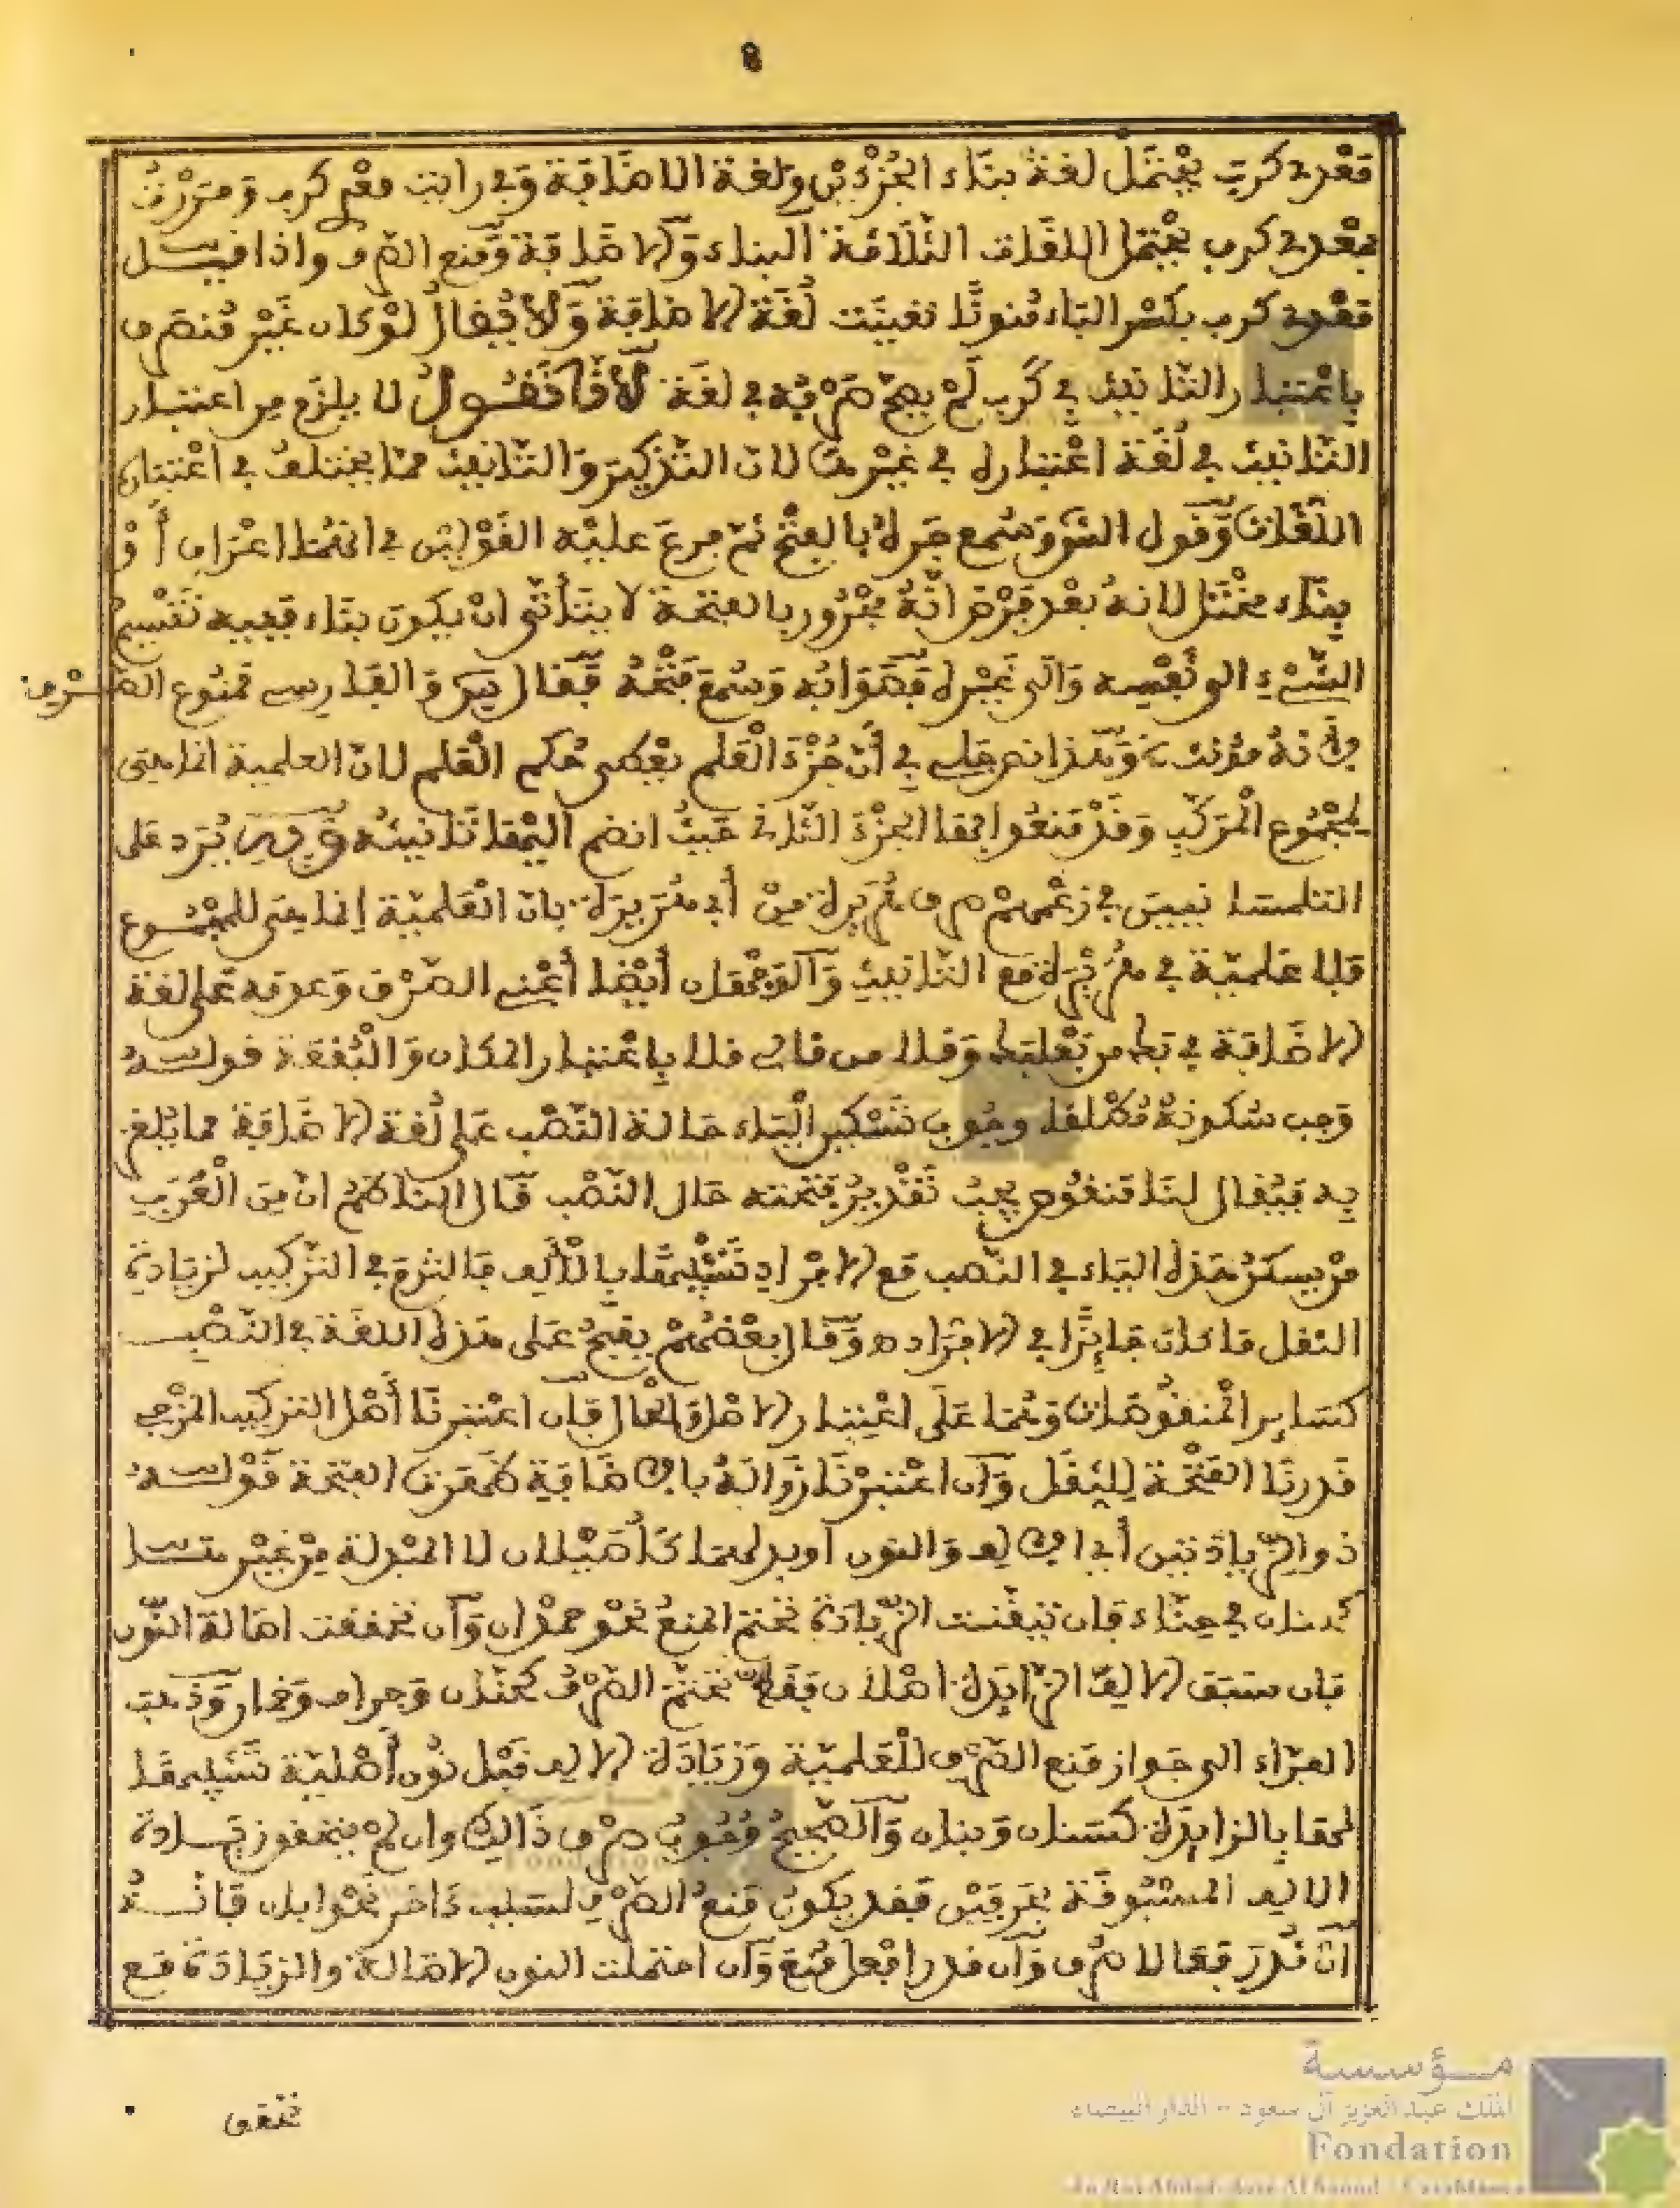 8
معدي كرب يحتمل لغة بناء الجزءين ولغة الاضافة وفي رايت معدي كرب ومررت
بمعدي كرب يحتمل اللغات الثلاثة البناء والاضافة ومنع الصرف واذا قيل
معدي كرب بكسر الباء منونا تعينت لغة الاضافة ولا يقال لو كان غير منصرف
باعتبار التانيث في كرب لم يصح صرفه في لغة لانا نقول لا يلزم من اعتبار
التانيث في لغة اعتباره في غيرها لان التذكير والتانيث مما يختلف في اعتباره
اللغات وقول وسمع جره بالفتح ثم فرع عليه القولين في انها اعراب أو
بناء مختل لانه بعد فرض انه مجرور بالفتحة لا يتأتى ان يكون بناء ففيه تقسيم
الشيء الى نفسه والى غيره فصوابه وسمع فتحه فقال والفارسي ممنوع الصرف
لانه مؤنث وهذا نص جلي في أن جزء العلم يعطى حكم العلم لان العلمية انما هي
لمجموع المركب وقد منعوا بها الجزء الثاني حيث انضم اليها تانيثه يرد على
التلمسانيين في زعمهم صرف هريرة من أبي هريرة بان العلمية إنما هي للمجموع
فلا علمية في هريرة مع التانيث والوجهان أيضا أعني الصرف وعدمه على لغة
الاضافة في بك من بعلبك وقلا من قالي قلا باعتبار المكان والبقعة قوله
وجب سكونه مطلقا وجوب تسكين الياء حالة النصب على لغة الاضافة مما يلغز
به فيقال لنا منقوص يجب تقدير فتحته حال النصب قال الناظم ان من العرب
من يسكن هذه الياء في النصب مع الافراد تشبيها بالألف فالتزم في التركيب لزيادة
الثقل ما كان جائزا في الافراد وقال بعضهم يفتح على هذه اللغة في النصب
كسائر المنقوصات وهما على اعتبار الاصل والحال فان اعتبرنا أصل التركيب المزجي
قدرنا الفتحة للثقل وان اعتبرنا زواله بالاضافة ظهرت الفتحة قوله
ذو الزيادتين أي الالف والنون أو بدلهما كأصيلال لا المبدلة من غيرها
كحنان في حناء فان تيقنت الزيادة تحتم المنع نحو حمدان وان تحققت اصالة النون
فان سبق الالف الزايدة اصلان فقط تحتم الصرف كعنان وجران وخار وذهب
الفراء الى جواز منع الصرف للعلمية وزيادة الالف قبل نون أصلية تشبيها
لها بالزايدة كسنان وبنان والصحيح وجوب صرف ذالك وان لم يتحقق زيادة
الالف المسبوقة بحرفين فقد يكون منع الصرف لسبب ءاخر نحو ابان فانه
ان قدر فعالا صرف وان قدر افعل منع وان احتملت النون الاصالة والزيادة مع
تحقق
مؤسسة
الملك عبد العزيز آل سعود - الدار البيضاء
Fondation